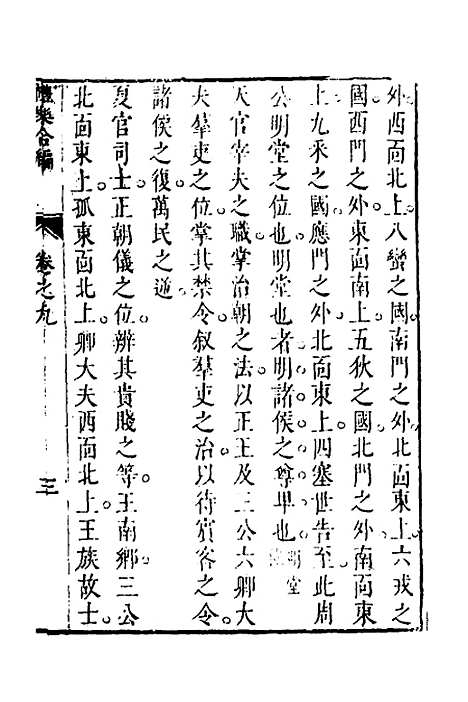 外西面北上八蠻之國南門之外北面東上六戎之
國西門之外東面南上五狄之國北門之外南面東
上九采之國應門之外北面東上四塞世告至此周
公明堂之位也明堂也者明諸侯之尊卑也明堂
天官宰夫之職掌治朝之法以正王及三公六卿大
夫羣吏之位掌其禁令叙羣吏之治以待賓客之令
諸侯之復萬民之逆
夏官司士正朝儀之位辨其貴賤之等王南鄉三公
北面東上孤東面北上卿大夫西面北上王族故士
禮樂合編
卷之九
三